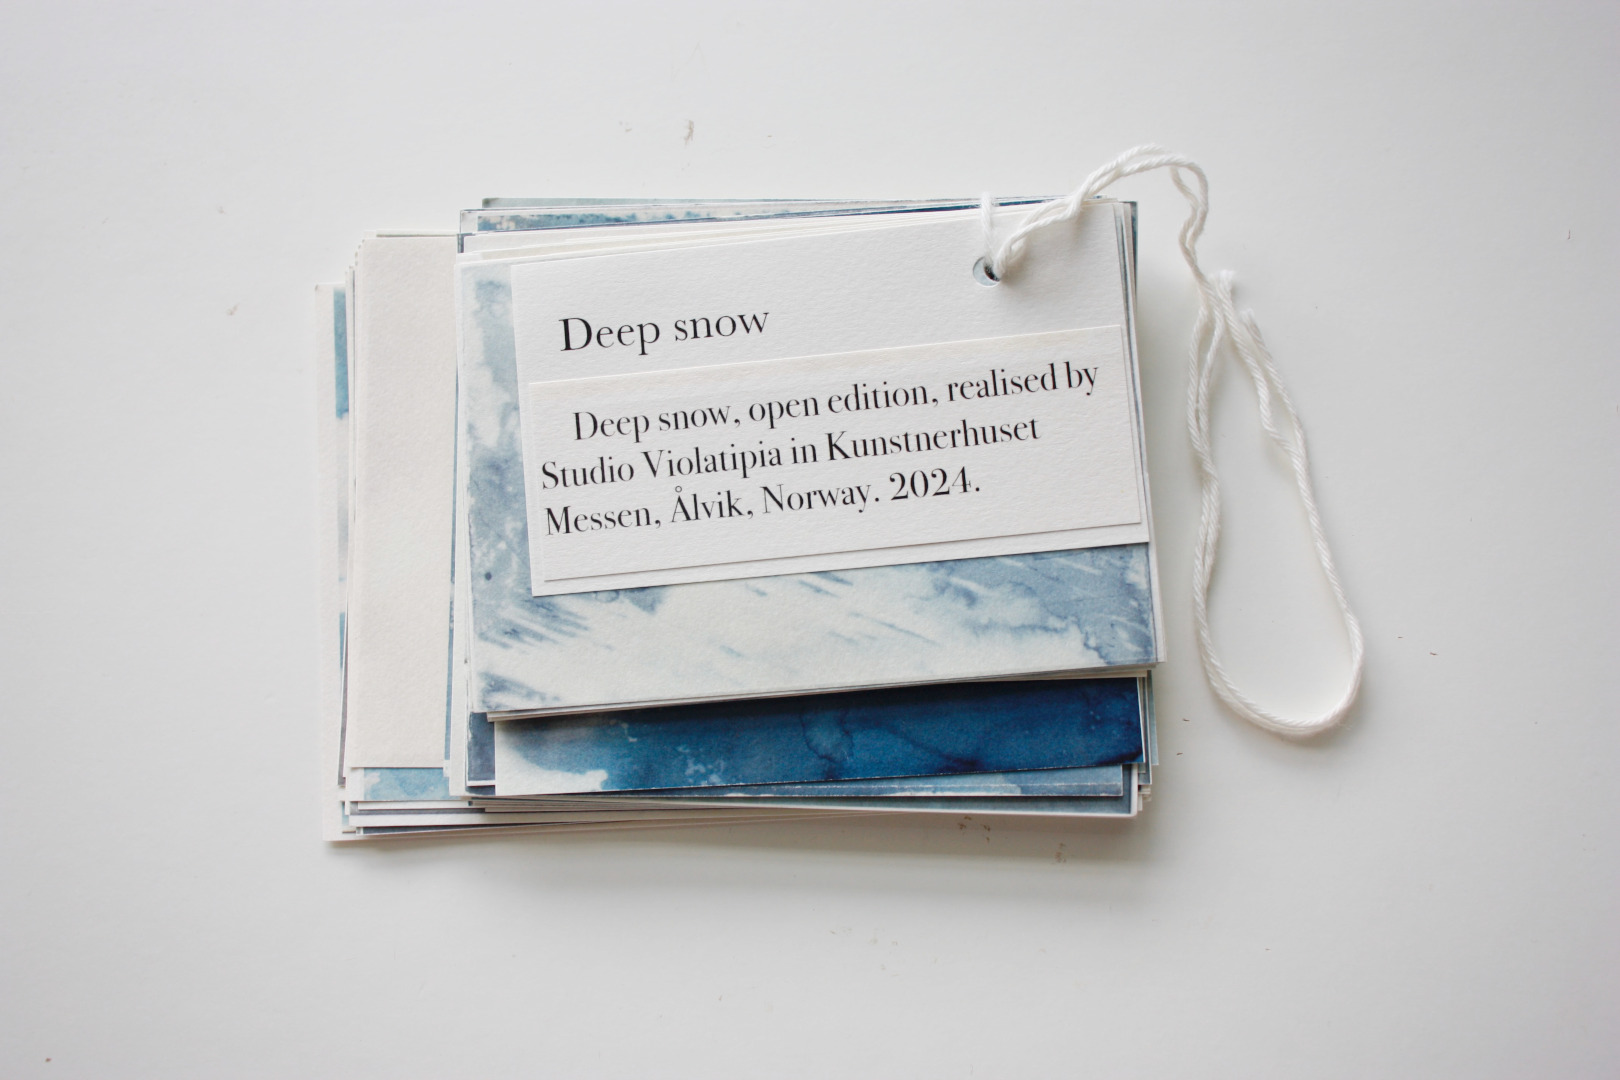 Deep snow
Deep snow, open edition, realised by
Studio Violatipia in Kunstnerhuset
Messen, Ålvik, Norway. 2024.